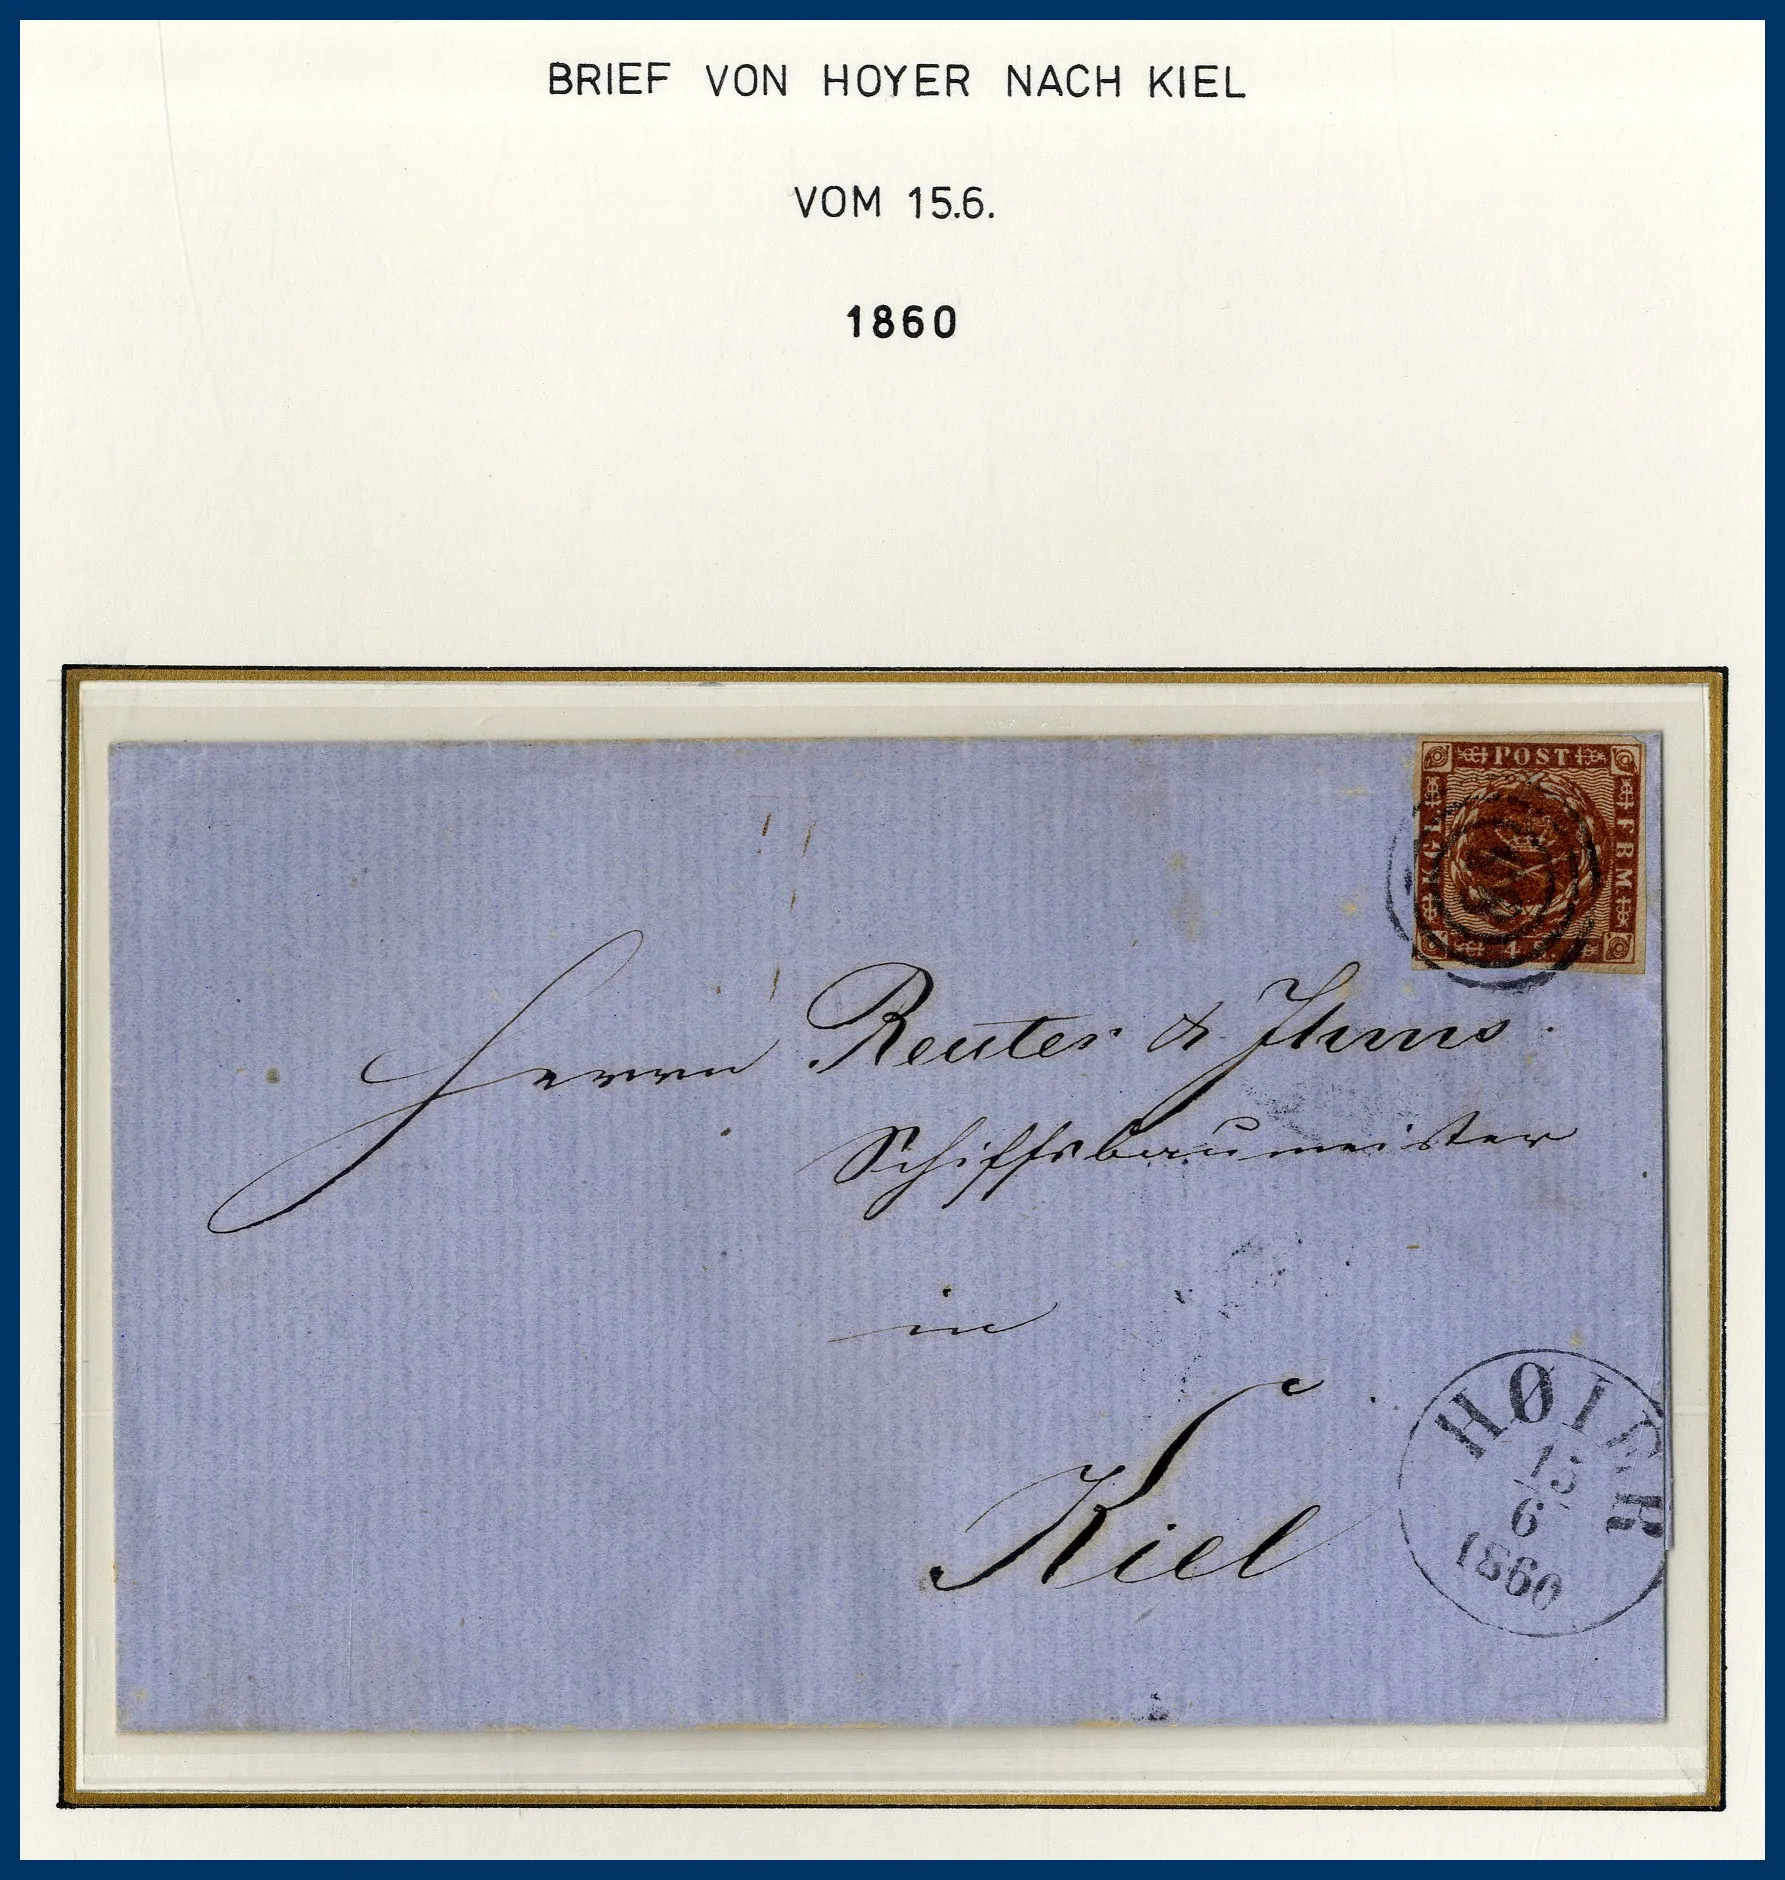 BRIEF VON HOYER NACH KIEL
VOM 15.6.
1860
POST
KGL
FRM
4 S.
Herrn Reuter & Ihms
Schiffsbaumeister
in
Kiel
HØIER
15
6
1860